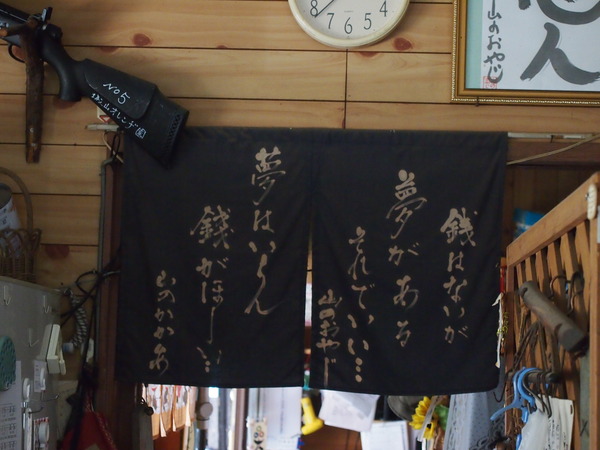 銭はないが
夢がある
それでいい…
山のおやじ
夢はいらん
銭がほしい…
山のかかあ
No5
山のおやじ
ん
5
6
7
8